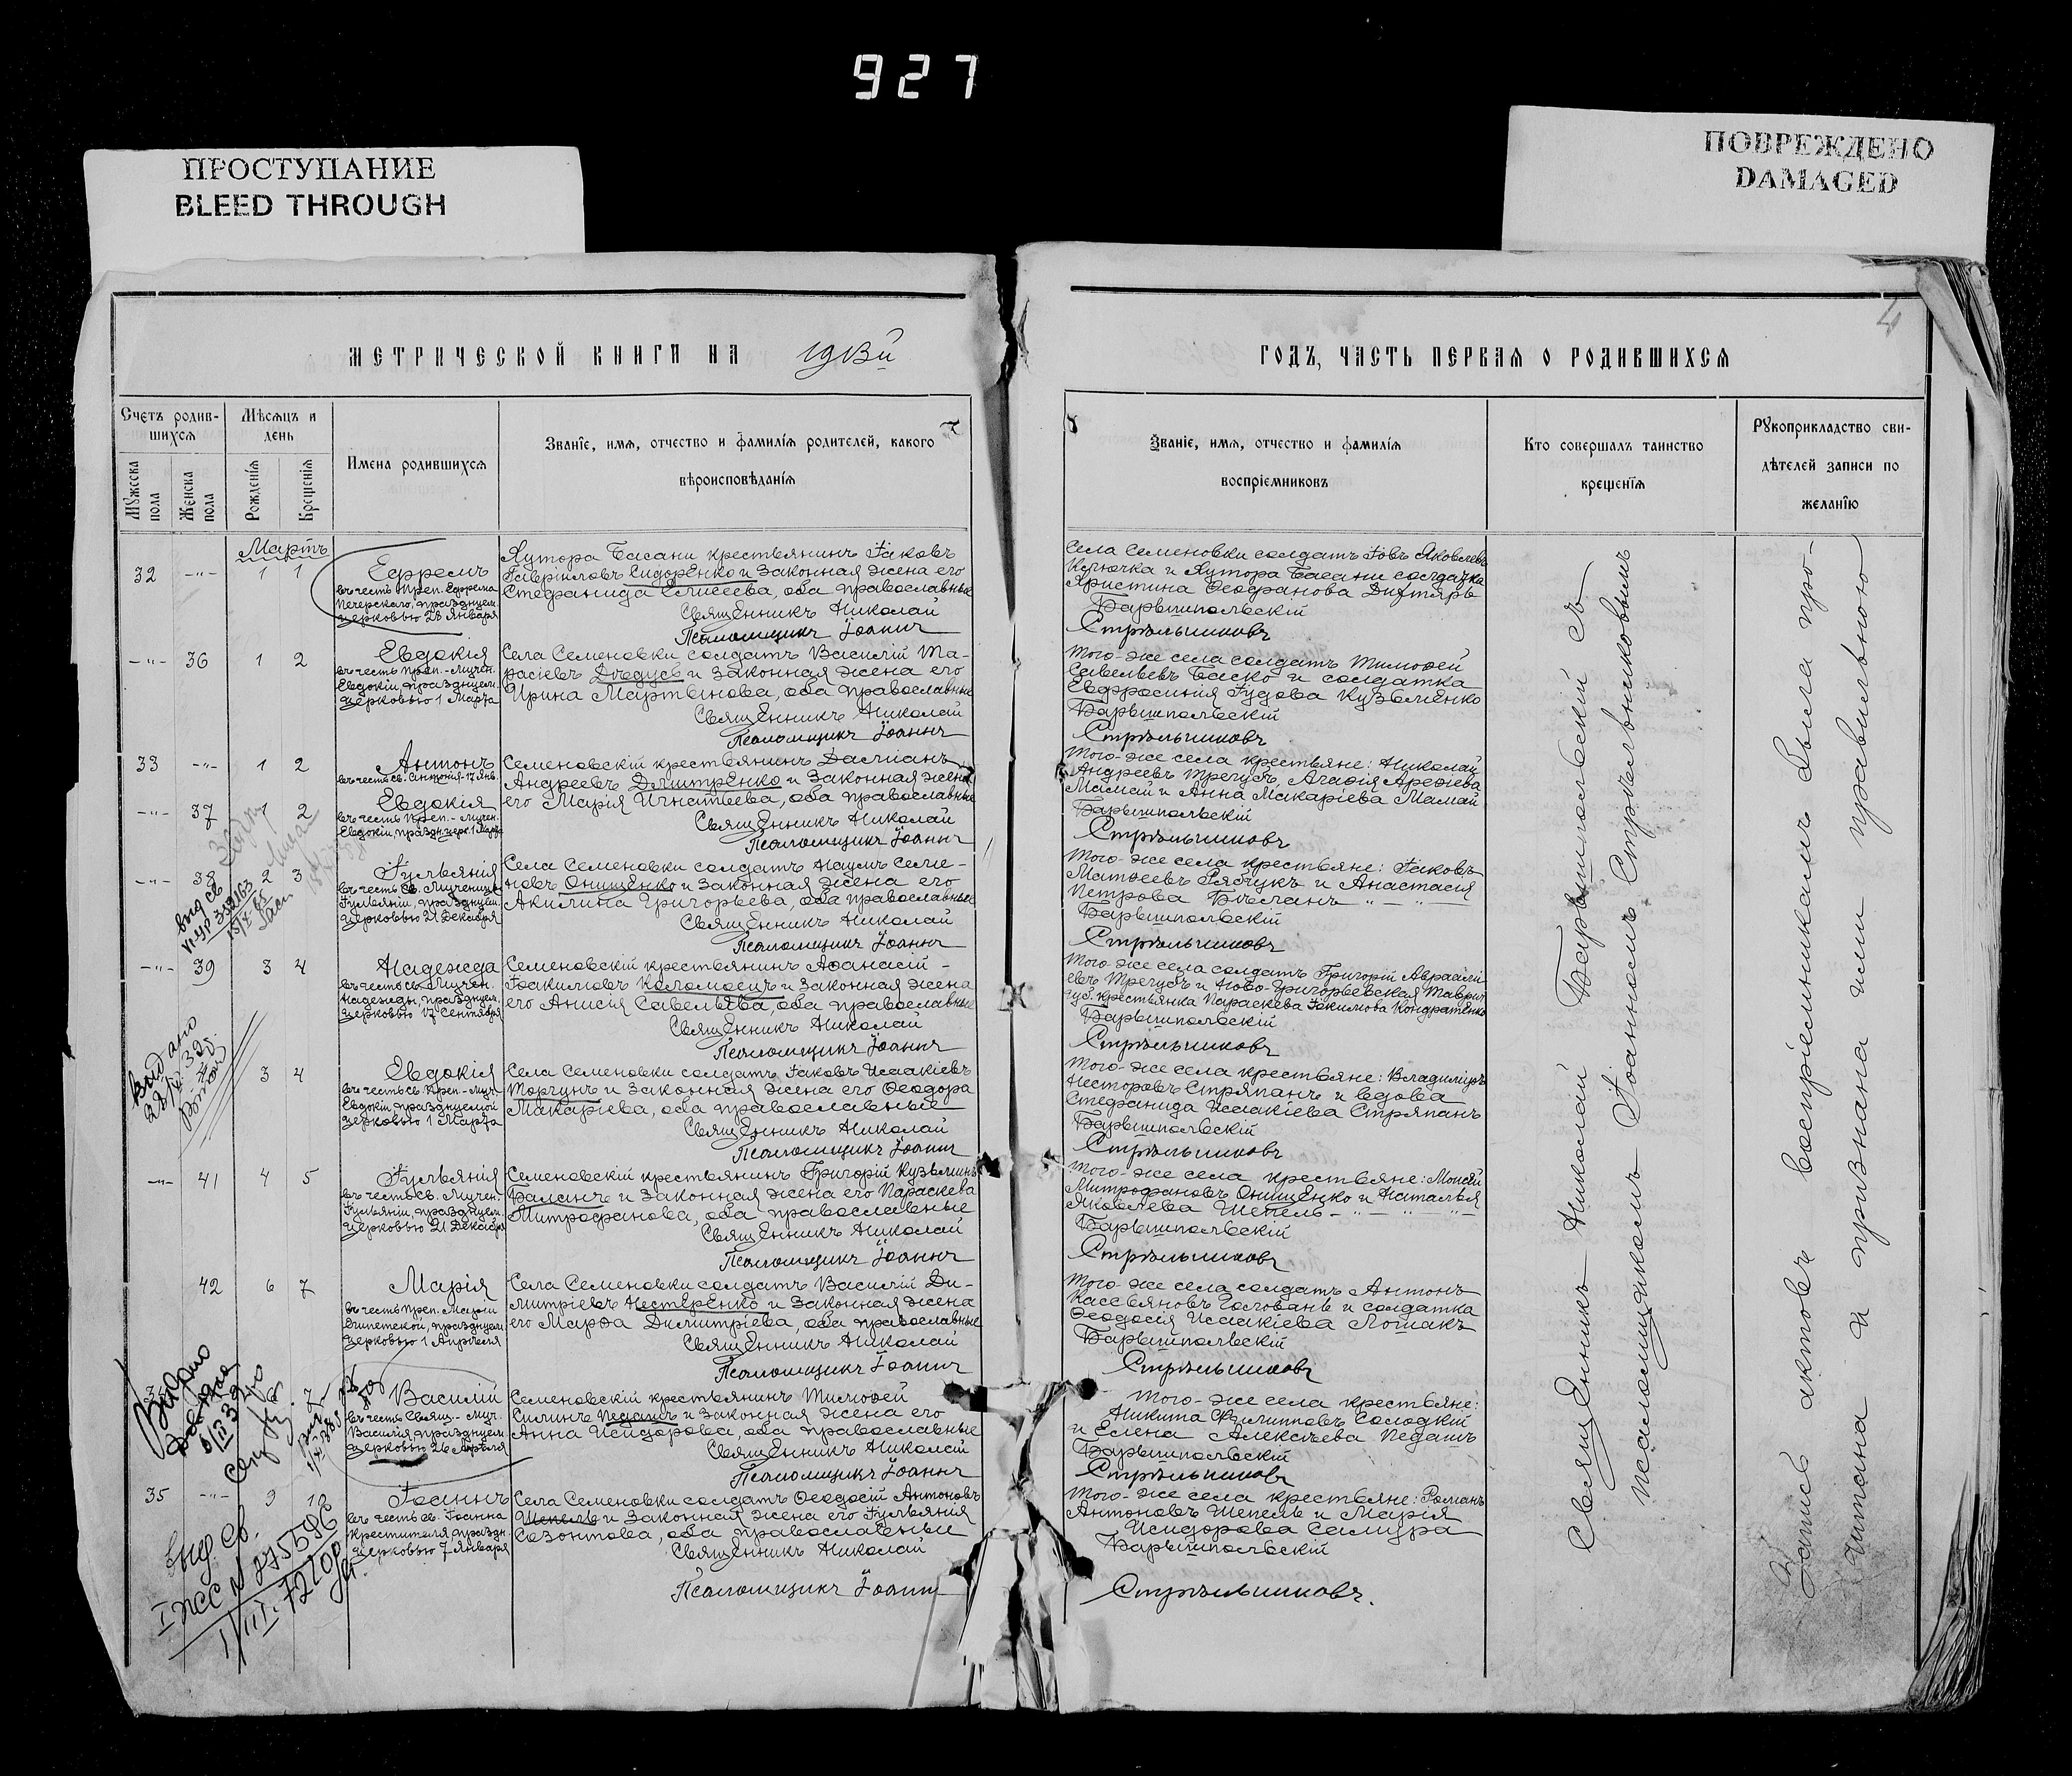 927
ПРОСТУПАНИЕ
BLEED THROUGH
ПОВРЕЖДЕНО
DAMAGED
МЕТРИЧЕСКОЙ КНИГИ НА
ГОДЪ, ЧАСТЬ ПЕРВАЯ О РОДИВШИХСЯ
Счетъ родив-
шихся
Мѣсяцъ и
день
Мужеска
пола
Женска
пола
Рожденія
Крещенія
Имена родившихся
Званіе, имя, отчество и фамилія родителей, какого
вѣроисповѣданія
Званіе, имя, отчество и фамилія
воспріемниковъ
Кто совершалъ таинство
крещенія
Рукоприкладство сви-
дѣтелей записи по
желанію
Мартъ
32 -"- 1 1
Ефремъ
въ честь Преп. Ефрема
Печерскаго, празднуем.
церковью 28 Января
Хутора Басани крестьянинъ Іаковъ
Гавріиловъ Сидоренко и законная жена его
Стефанида Елисеева, оба православные
Священникъ Николай
Псаломщикъ Іоаннъ
Села Семеновки солдатъ Іовъ Яковлевъ
и Хутора Басани солдатка
Христина Феофанова Дихтярь
Барышпольскій
Стрѣльниковъ
-"- 36 1 2
Евдокія
въ честь Преп.-Мучен.
Евдокіи, празднуем.
церковью 1 Марта
Села Семеновки солдатъ Василій Та-
расіевъ Дѣдусь и законная жена его
Ирина Мартынова, оба православные
Священникъ Николай
Псаломщикъ Іоаннъ
Того-же села солдатъ Тимофей
Савельевъ Баско и солдатка
Евфросинія Іудова Кузьменко
Барышпольскій
Стрѣльниковъ
33 -"- 1 2
Антонъ
въ честь св. Антонія 17 Янв.
-"- 37 1 2
Евдокія
въ честь Преп.-Мучен.
Евдокіи, праздн. церк. 1 Марта
Семеновскій крестьянинъ Даміанъ
Андреевъ Дмитренко и законная жена
его Марія Игнатьева, оба православные
Священникъ Николай
Псаломщикъ Іоаннъ
Того-же села крестьяне: Николай
Андреевъ Трегубъ, Агафія Арефіева
Мамай и Анна Макаріева Мамай
Барышпольскій
Стрѣльниковъ
-"- 38 2 3
Іуліанія
въ честь Св. Мученицы
Іуліаніи, празднуем.
церковью 21 Декабря
Села Семеновки солдатъ Наумъ Семе-
новъ Онищенко и законная жена его
Акилина Григорьева, оба православные
Священникъ Николай
Псаломщикъ Іоаннъ
Того-же села крестьяне: Іаковъ
Матѳеевъ Рябчукъ и Анастасія
Петрова
Барышпольскій
Стрѣльниковъ
-"- 39 3 4
Надежда
въ честь св. Мучен.
Надежды, празднуем.
церковью 17 Сентября
Семеновскій крестьянинъ Афанасій
Іоакимовъ Коломоецъ и законная жена
его Анисія Савельева, оба православные
Священникъ Николай
Псаломщикъ Іоаннъ
Того-же села солдатъ Григорій Авраамі-
евъ Трегубъ и Ново-Григорьевская Таврич.
губ. крестьянка Параскева Іоакимова Кондратенко
Барышпольскій
Стрѣльниковъ
3 4
Евдокія
въ честь св. Преп.-Муч.
Евдокіи празднуемой
церковью 1 Марта
Села Семеновки солдатъ Іаковъ Исаакіевъ
Моргунъ и законная жена его Феодора
Макаріева, оба православные
Священникъ Николай
Псаломщикъ Іоаннъ
Того-же села крестьяне: Владиміръ
Несторовъ Стряпанъ и вдова
Стефанида Исаакіева Стряпанъ
Барышпольскій
Стрѣльниковъ
-"- 41 4 5
Іуліанія
въ честь св. Мучен.
Іуліаніи, празднуем.
церковью 21 Декабря
Семеновскій крестьянинъ Григорій Кузьминъ
Баланъ и законная жена его Параскева
Митрофанова, оба православные
Священникъ Николай
Псаломщикъ Іоаннъ
Того-же села крестьяне: Моисей
Митрофановъ Онищенко и Наталья
Яковлева Шепель
Барышпольскій
Стрѣльниковъ
42 6 7
Марія
въ честь Преп. Маріи
Египетской, празднуем.
церковью 1 Апрѣля
Села Семеновки солдатъ Василій Ди-
митріевъ Нестеренко и законная жена
его Марфа Димитріева, оба православные
Священникъ Николай
Псаломщикъ Іоаннъ
Того-же села солдатъ Антонъ
Кассьяновъ Головань и солдатка
Феодосія Исаакіева Лошакъ
Барышпольскій
Стрѣльниковъ
Василій
въ честь Свящ.-Муч.
Василія, празднуем.
церковью 26 Апрѣля
Семеновскій крестьянинъ Тимофей
Силинъ Педашъ и законная жена его
Анна Исидорова, оба православные
Священникъ Николай
Псаломщикъ Іоаннъ
Того-же села крестьяне:
Никита Филипповъ Солодкій
и Елена Алексѣева Педашъ
Барышпольскій
Стрѣльниковъ
35 -"- 9 10
Іоаннъ
въ честь св. Іоанна
Крестителя праздн.
церковью 7 Января
Села Семеновки солдатъ Феодосій Антоновъ
Шепель и законная жена его Іуліанія
Созонтова, оба православные
Священникъ Николай
Псаломщикъ Іоаннъ
Того-же села крестьяне: Романъ
Антоновъ Шепель и Марія
Исидорова
Барышпольскій
Стрѣльниковъ.
Священникъ Николай Барышпольскій съ
псаломщикомъ Іоанномъ Стрѣльниковымъ
Запись актовъ воспріемникамъ была про-
читана и признана ими правильною